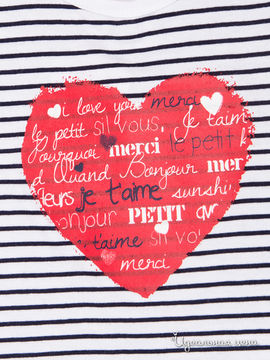 i love you merci
le petit sil vous, je t'aim
pourquoi merci le petit k
d Quand Bonjour mer
fleurs je t'aime sunshi
onjour PETIT
t'aime sil vo
merci
Идеальная цена